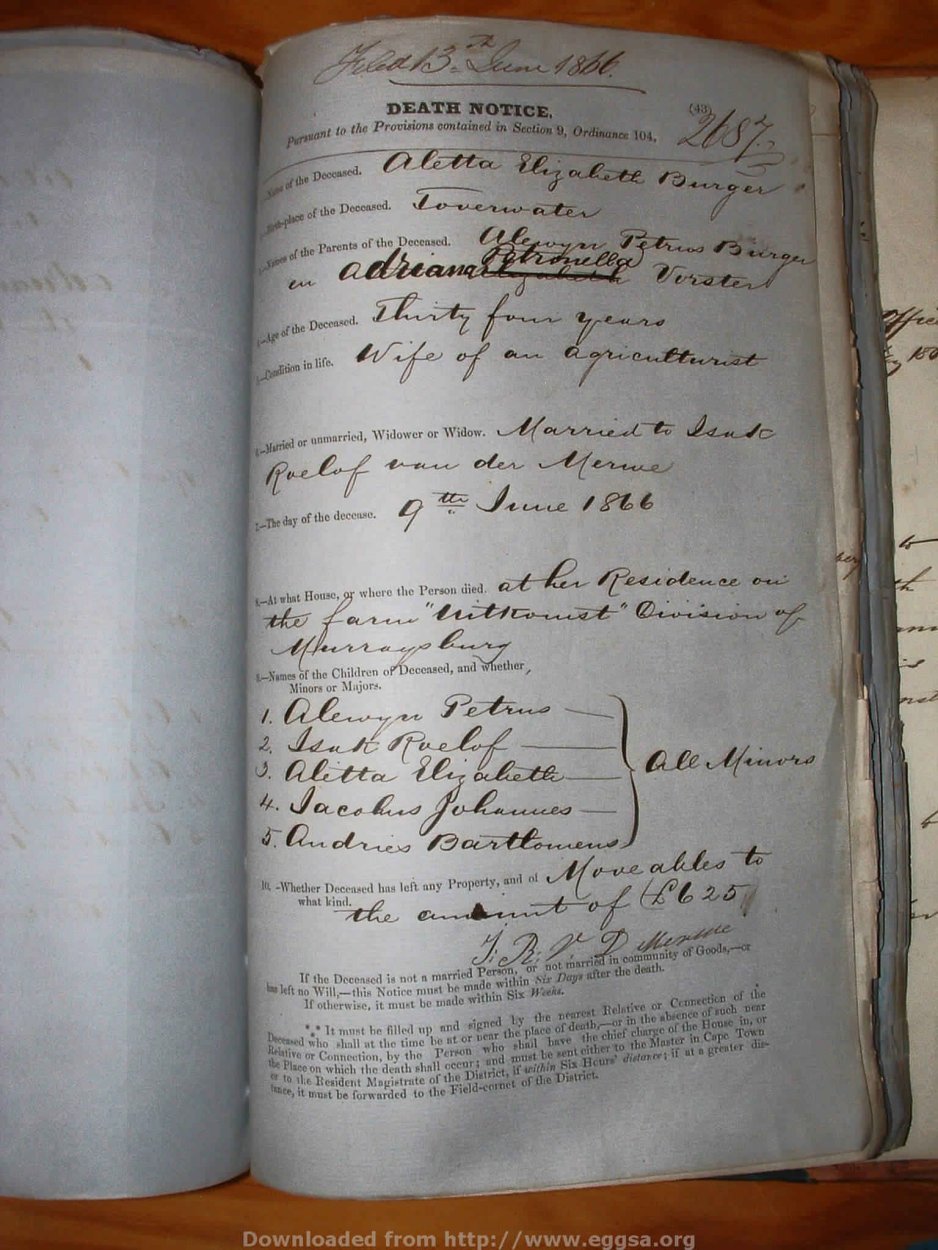 Filed 13th June 1866.
DEATH NOTICE,
(43)
2687.
Pursuant to the Provisions contained in Section 9, Ordinance 104.
Name of the Deceased. Aletta Elizabeth Burger
Birth-place of the Deceased. Toverwater
Names of the Parents of the Deceased. Alewyn Petrus Burger
en Adriana Petronella Vorster
4.—Age of the Deceased. Thirty four years
5.—Condition in life. Wife of an Agricultturist
6.—Married or unmarried, Widower or Widow. Married to Isak
Roelof van der Merwe
7.—The day of the decease. 9th June 1866
8.—At what House, or where the Person died. at her Residence on
the farm "Uitkomst" Division of
Murraysburg
9.—Names of the Children of Deceased, and whether,
Minors or Majors.
1. Alewyn Petrus —
2. Isak Roelof —
3. Aletta Elizabeth — All Minors
4. Jacobus Johannes —
5. Andries Bartlomeus
10. -Whether Deceased has left any Property, and of Moveables to
what kind.
the amount of £625
I. R. V. D Merwe
If the Deceased is not a married Person, or not married in community of Goods,—or
has left no Will,—this Notice must be made within Six Days after the death.
If otherwise, it must be made within Six Weeks.
*** It must be filled up and signed by the nearest Relative or Connection of the
Deceased who shall at the time be at or near the place of death,—or in the absence of such near
Relative or Connection, by the Person who shall have the chief charge of the House in, or
the Place on which the death shall occur; and must be sent either to the Master in Cape Town
or to the Resident Magistrate of the District, if within Six Hours' distance; if at a greater dis-
tance, it must be forwarded to the Field-cornet of the District.
Downloaded from http://www.eggsa.org